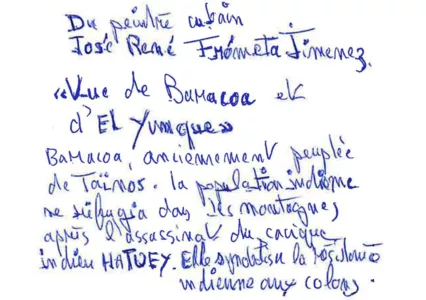 Du peintre cubain
José René Frómeta Jimenez.
«Vue de Baracoa et
d'El Yunque»
Baracoa, anciennement peuplée
de Taïnos. la population indienne
se réfugia dans les montagnes,
après l'assassinat du cacique
indien HATUEY. Elle la
indienne aux colons.